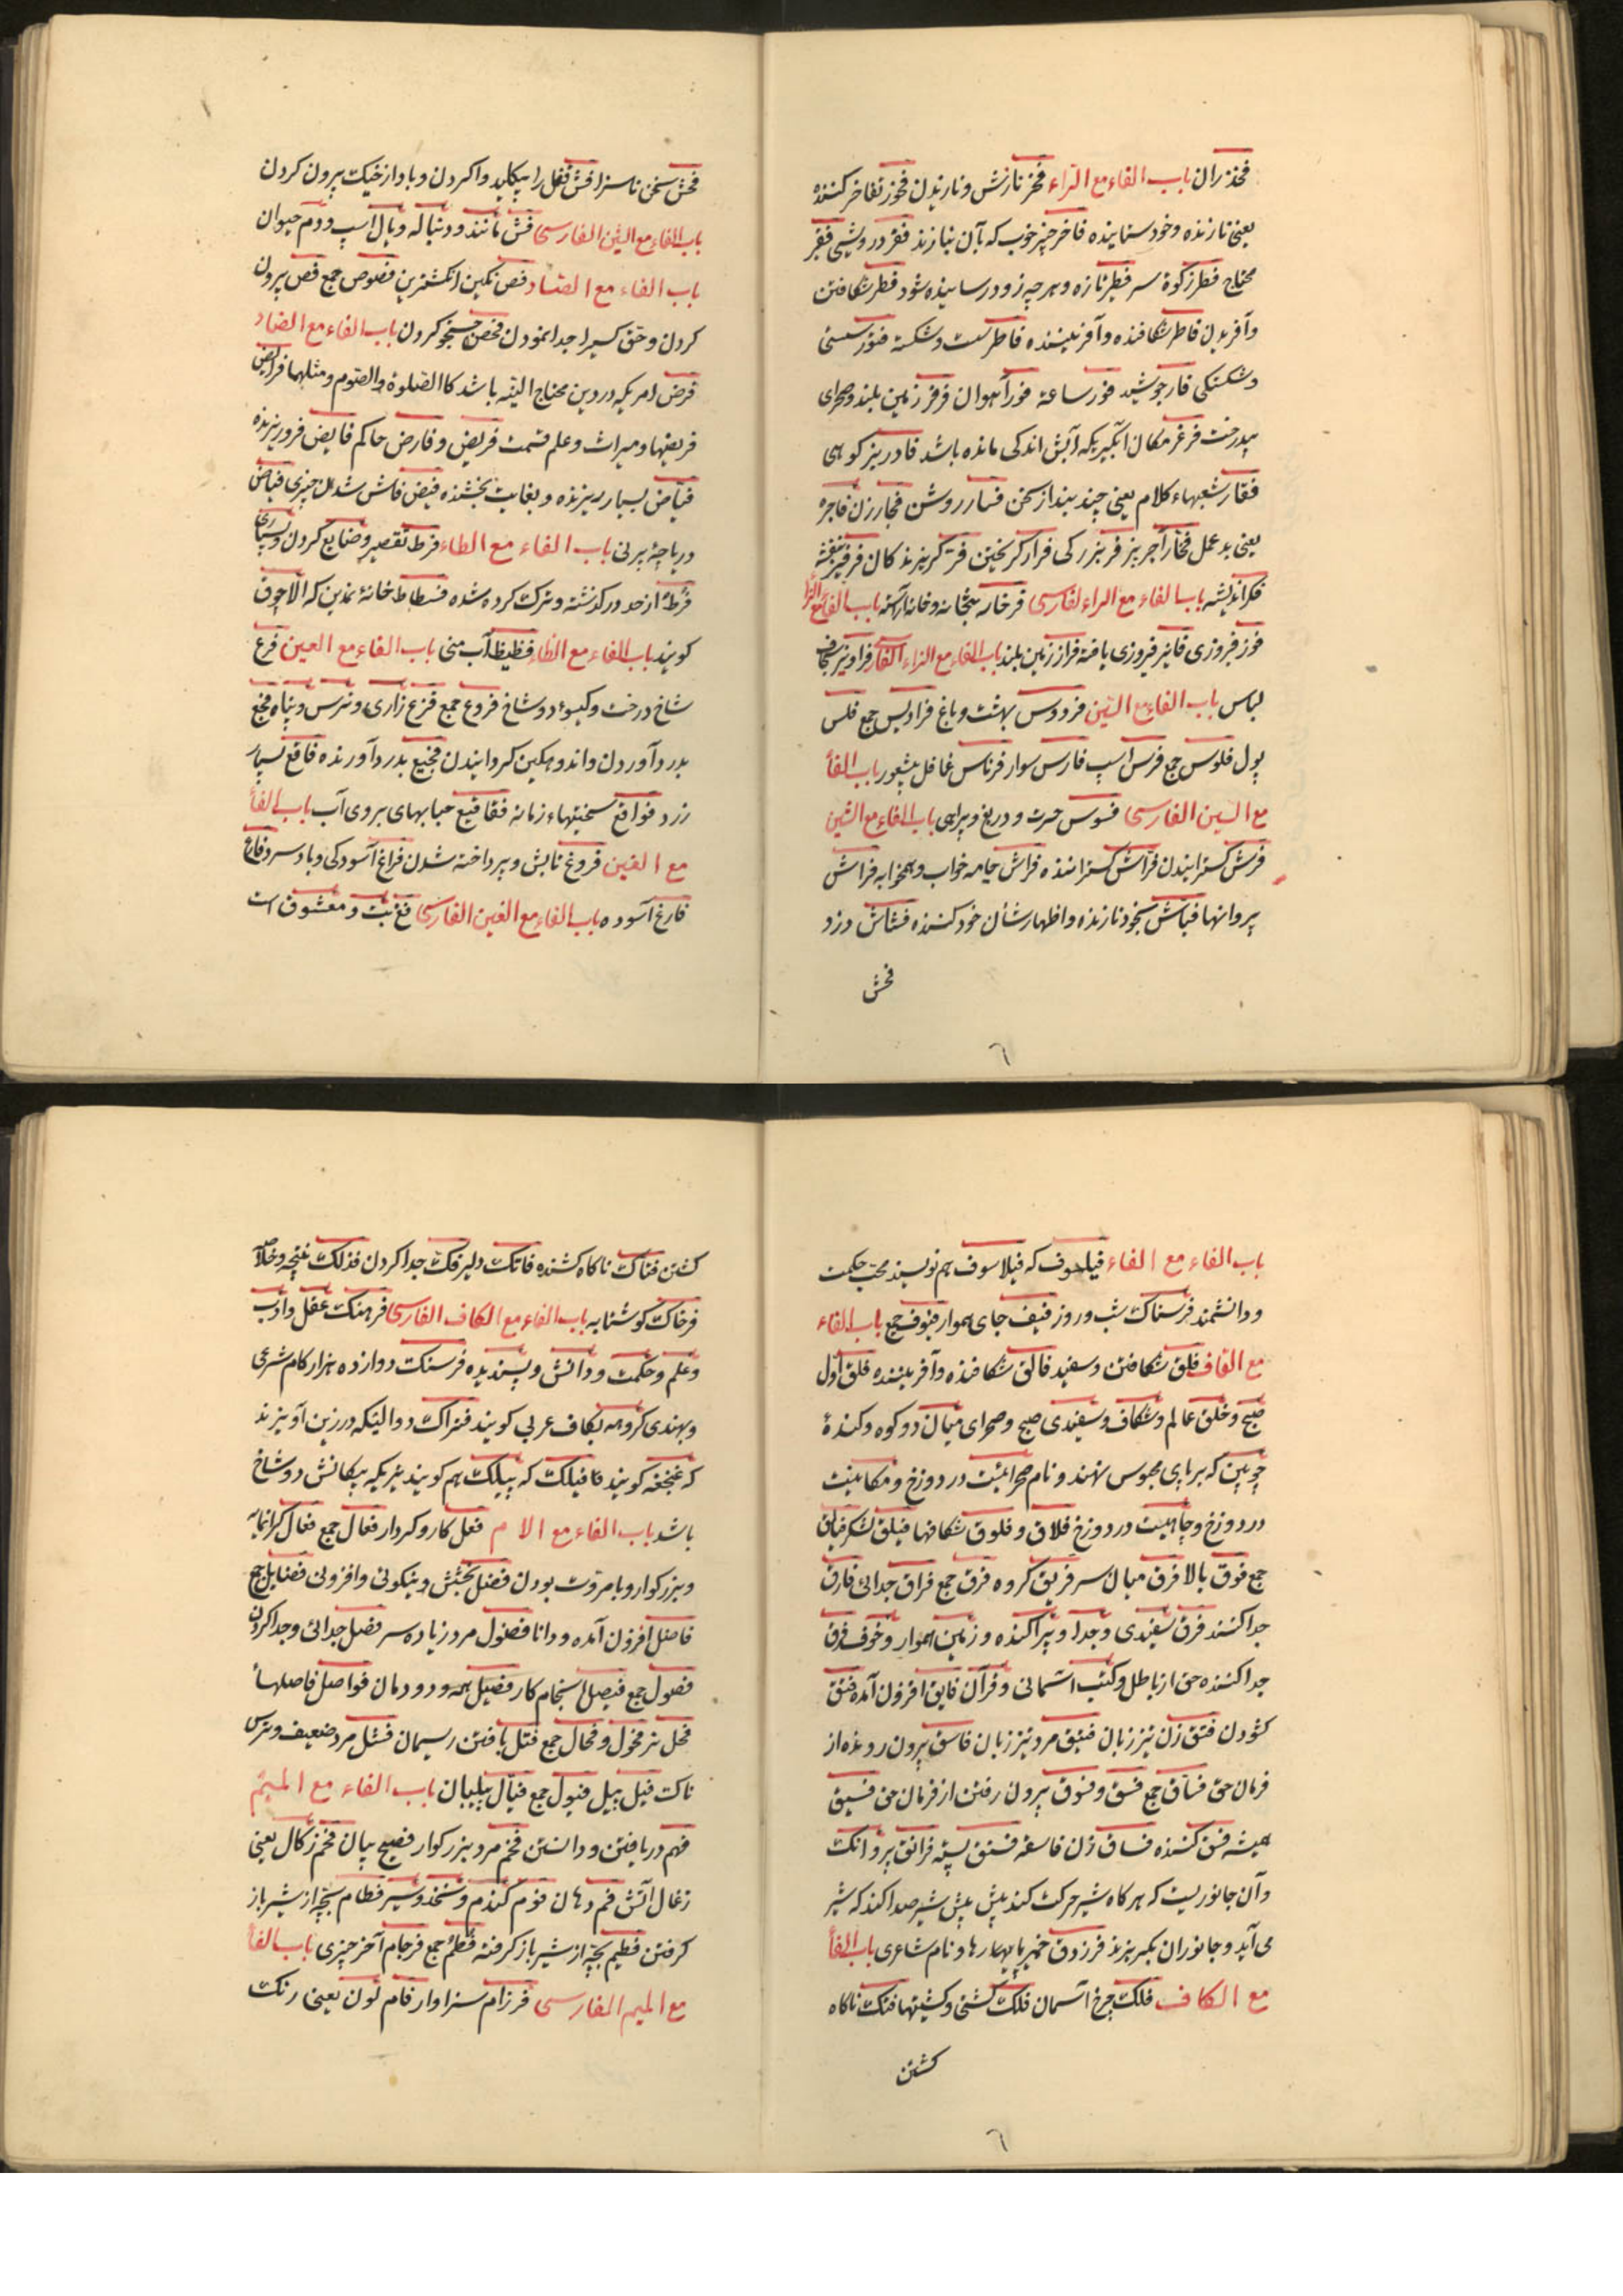 فخذ ران باب الفاء مع الراء فخر نازش و نازیدن فخور تفاخر کننده
یعنی نازنده و خود ستاینده فاخر چیز خوب که بآن نیازند فقر درویشی فقیر
محتاج فطر زکوة سر فطیر تازه و هر چه زود رسانیده شود فطر شکافتن
و آفریدن فاطر شکافنده و آفریننده فاطر سست و شکسته فتور سستی
و شکستکی فار جوشید فور ساعة فور آهوان زمین بلند و صحرای
بیدرخت فرغر مکان آبگیریکه آبش اندکی مانده باشد فادر بز کوهی
فقار شعبهاء کلام یعنی چند بند از سخن روشن فجار زن فاجره
یعنی بد عمل فخار آجر پز فر بزرکی فرار کریختن کریزند کان
فکر اندیشه باب الفاء مع الراء لفارسی فرخار بتخانه و خانه آراسته باب الفاء مع الزا
فوز فیروزی فایز فیروزی یافته فراز زمین بلند باب الفاء مع الزاء الفارسی
لباس باب الفاء مع السین فردوس بهشت و باغ فرادیس جمع فلس
پول فلوس جمع فرس اسپ فارس سوار فرناس غافل بیشعور باب الفاء
مع السین الفارسی فسوس حسرت و دریغ و بیراهی باب الفاء مع الشین
فرش کسترانیدن فراش کستراننده فراش جامه خواب و همخوابه فراش
پروانها فیاش بخود نازنده و اظهار شان خود کننده فشاش دزد
فحش
فحش سخن ناسزا فش قفل را بیکلید وا کردن و باد از خیک بیرون کردن
باب الفاء مع الشین الفارسی فش مانند و دنباله و یال اسپ و دم حیوان
باب الفاء مع الصاد فص نکین انکشترین فصوص جمع فص بیرون
کردن و حق کسیرا جدا نمودن فحص جستجو کردن باب الفاء مع الضاد
فرض امریکه در دین محتاج الیه باشد کالصلوة و الصوم و مثلهما فرایض
فریضها و میراث و علم قسمت فریض و فارض حاکم فایض فرو ریزنده
فیاض بسیار ریزنده و بغایت بخشنده فیض فاش شدن چیزی فیاض
دریاچه باب الفاء مع الطاء فرط تقصیر و ضایع کردن و بسیاری
فرط از حد در کذشته و ترک کرده شده فسطاط خانه نمدین که الاچوق
کویند باب الفاء مع الظاء فظیظ آب منی باب الفاء مع العین فرع
شاخ درخت و کیسوء دوشاخ فروع جمع فزع زاری و ترس و پناه فجع
بدرد آوردن و اندوهکین کردانیدن فجیع بدرد آورنده فاقع بسیار
زرد فواقع سختیهاء زمانه فقاقیع حبابهای بروی آب باب الفاء
مع الغین فروغ تابش و پرداخته شدن فراغ آسودکی و باد سرد
فارغ آسوده باب الفاء مع الغین الفارسی فغ بت و معشوق است
باب الفاء مع الفاء فیلسوف که فیلاسوف هم نویسند محب حکمت
و دانشمند فرسناک شب و روز فیف جای هموار فیوف جمع باب الفاء
مع القاف فلق شکافتن و سفید فالق شکافنده و آفریننده فلق اول
صبح و خلق عالم و شکاف و سفیدی صبح و صحرای میان دو کوه و کنده
چوبین که بر پای محبوس نهند و نام صحرائیست در دوزخ و مکانیست
در دوزخ و چاهیست در دوزخ فلاق و فلوق شکافها فیلق لشکر فیالق
جمع فوق بالا فرق میان سر فریق کروه فرق جمع فراق جدائی فارق
جدا کننده فرق سفیدی و جدا و پراکنده و زمین هموار و خوف فرق
جدا کننده حق از باطل و کتب آسمانی و قرآن فایق افزون آمده فتق
کشودن فتق زن تیز زبان فتیق مرد تیز زبان فاسق بیرون رونده از
فرمان حق فساق جمع فسق و فسوق بیرون رفتن از فرمان حق فسیق
همیشه فسق کننده فساق زن فاسقه فستق پسته فرانق پروانک
و آن جانوریست که هر کاه شیر حرکت کند پیش پیش شیر صدا کند که شیر
می آید و جانوران بکریزند فرزدق و نام شاعری باب الفاء
مع الکاف فلک چرخ آسمان فلک کشتی و کشتیها فتک ناکاه
کشتن
کشتن فتاک ناکاه کشنده فاتک دلیر فک جدا کردن فذلک نتیجه و خلاصه
فرخاک کوشتابه باب الفاء مع الکاف الفارسی فرهنک عقل و ادب
و علم و حکمت و دانش و پسندیده فرسنک دوازده هزار کام شرعی
و بهندی کروهه بکاف عربی کویند فتراک دوالیکه در زین آویزند
که غنجغه کویند فیلک که بیلک هم کویند تیریکه پیکانش دوشاخ
باشد باب الفاء مع الام فعل کار و کردار فعال جمع فعال کرانمایه
و بزرکوار و بامروت بودن فضل بخشش و نیکوئی و افزونی فضایل جمع
فاضل افزون آمده و دانا فضول مرد زیاده سر فصل جدائی و جدا کردن
فصول جمع فیصل انجام کار فصیل بچه و دودمان فواصل فاصلها
فحل نر فحول و فحال جمع فتل بافتن ریسمان فشل مرد ضعیف و ترس
ناک فیل پیل فیول جمع فیال پیلبان باب الفاء مع المیم
فهم دریافتن و دانستن فخم مرد بزرکوار فصیح بیان فحم زکال یعنی
زغال آتش فم دهان فوم کندم و نخود و سیر فطام بچه از شیر باز
کرفتن فطیم بچه از شیر باز کرفته فطم جمع فرجام آخر چیزی باب الفاء
مع المیم الفارسی فرزام سزاوار فام لون یعنی رنک